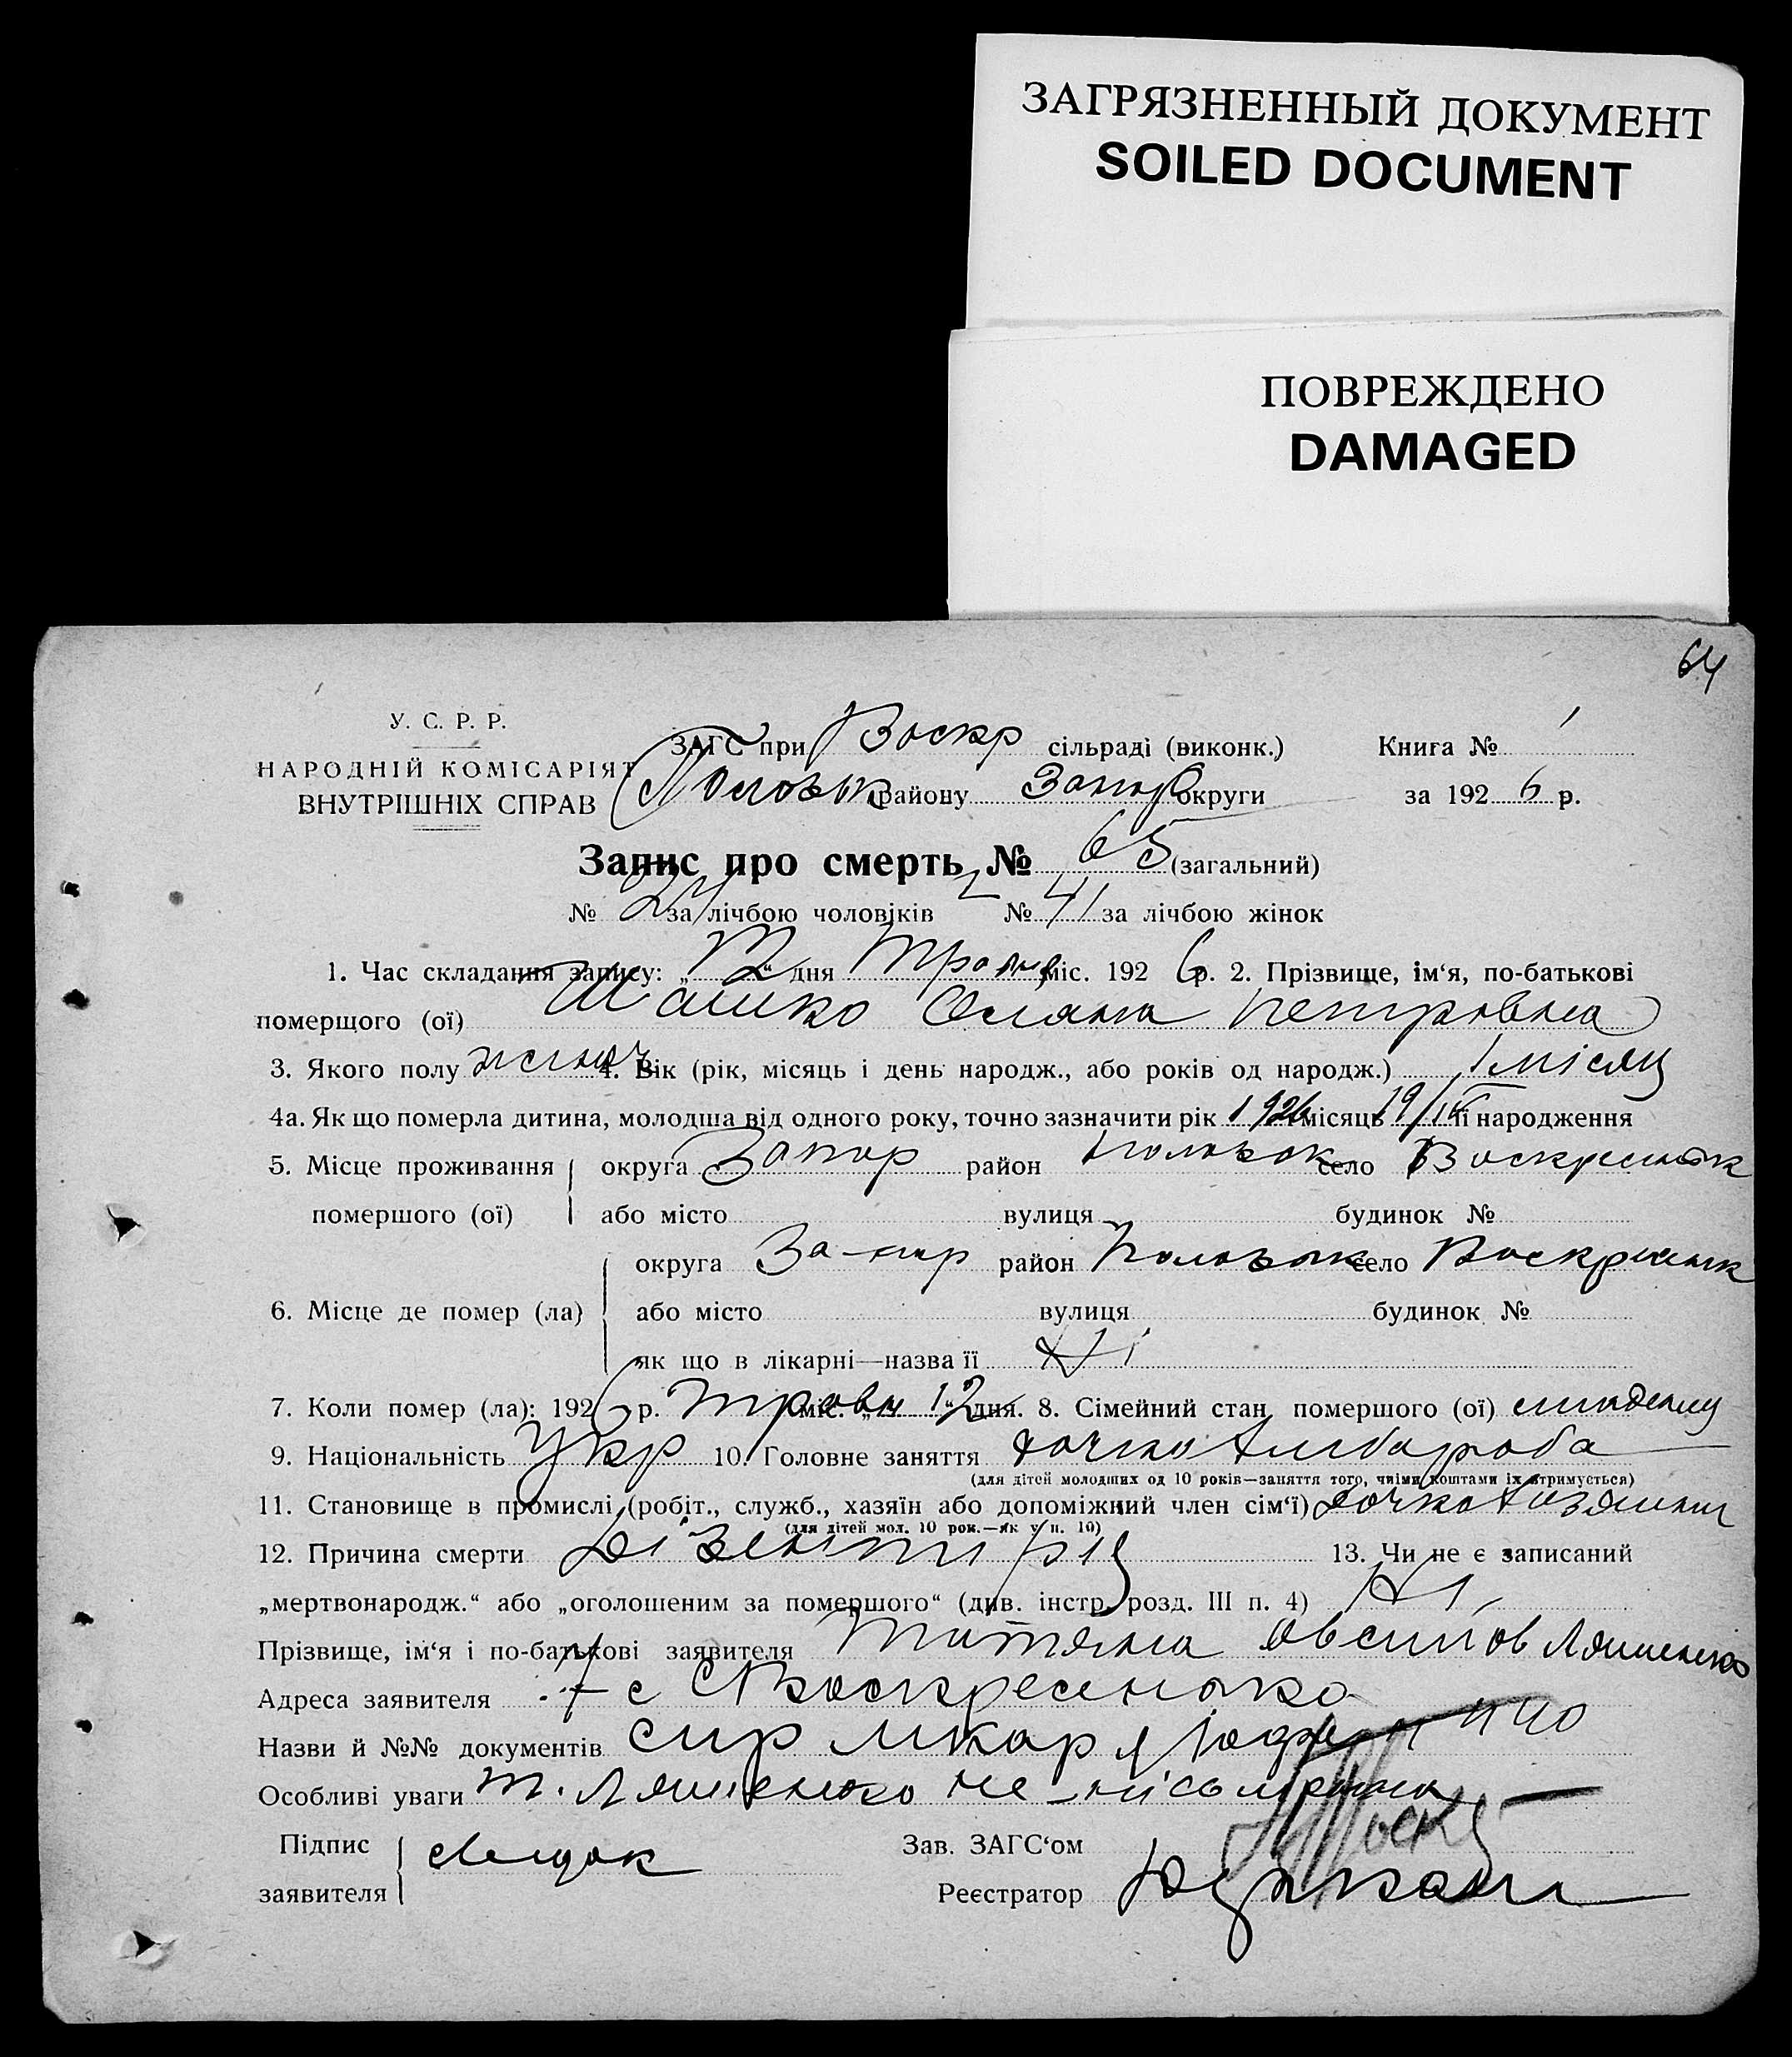 ЗАГРЯЗНЕННЫЙ ДОКУМЕНТ
SOILED DOCUMENT
ПОВРЕЖДЕНО
DAMAGED
64
У. С. Р. Р.
НАРОДНІЙ КОМІСАРІЯТ
ВНУТРІШНІХ СПРАВ
ЗАГС при Воскр сільраді (виконк.) Книга № 1
району Запор округи за 1926 р.
Запис про смерть № 65 (загальний)
№ 24 за лічбою чоловіків № 41 за лічбою жінок
1. Час складання запису: „12“ дня Травня міс. 1926 р. 2. Прізвище, ім‘я, по-батькові
померщого (ої) Оляна Петрівна
3. Якого полу жіноч 4. Вік (рік, місяць і день народж., або років од народж.) 1 місяц
4а. Як що померла дитина, молодша від одного року, точно зазначити рік 1926 місяць 19/IV її народження
5. Місце проживання округа Запор район село Воскресенськ
помершого (ої) або місто вулиця будинок №
округа Запор район село Воскресенськ
6. Місце де помер (ла) або місто вулиця будинок №
як що в лікарні—назва її Ні
7. Коли помер (ла): 1926 р. травн міс. „12“ дня. 8. Сімейний стан помершого (ої)
9. Національність Укр 10. Головне заняття дочка хлібороба
(для дітей молодших од 10 років—заняття того, чиїми коштами їх утримується)
11. Становище в промислі (робіт., служб., хазяїн або допоміжний член сім‘ї) дочка хазяїна
(для дітей мол. 10 рок.—як у п. 10)
12. Причина смерти Дізентирія 13. Чи не є записаний
„мертвонародж.“ або „оголошеним за помершого“ (див. інстр. розд. III п. 4) Ні
Прізвище, ім‘я і по-батькові заявителя Татяна Овсиїов Ляшенко
Адреса заявителя с Воскресенка
Назви й №№ документів лікар N 40
Особливі уваги Т. Ляшенко не письменна
Підпис Зав. ЗАГС‘ом
заявителя Реєстратор